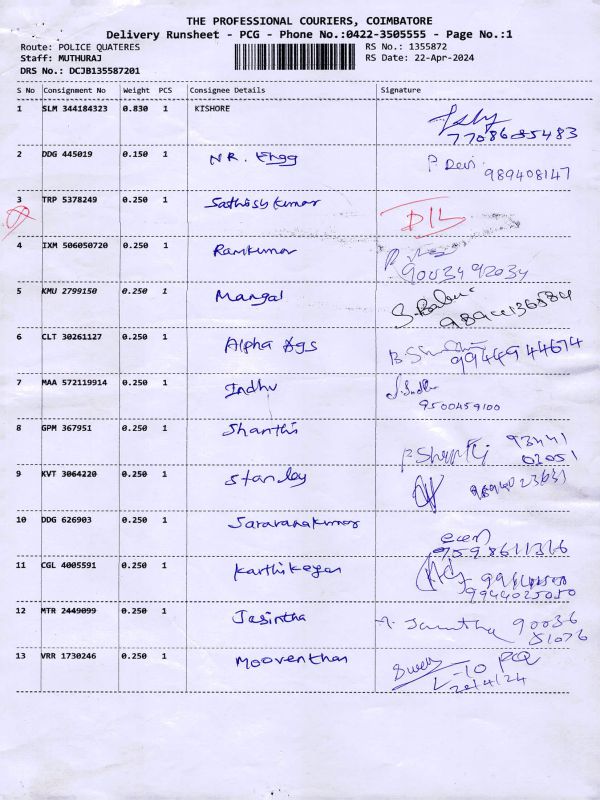 THE PROFESSIONAL COURIERS, COIMBATORE
Delivery Runsheet - PCG - Phone No.:0422-3505555 - Page No.:1
Route: POLICE QUATERES
RS No.: 1355872
Staff: MUTHURAJ
RS Date: 22-Apr-2024
DRS No.: DCJB135587201
S No Consignment No Weight PCS Consignee Details Signature
1 SLM 344184323 0.830 1 KISHORE
7708685483
2 DDG 445019 0.150 1 N.R. Engg P. Devi
989408147
3 TRP 5378249 0.250 1 Sathish kumar
4 IXM 506050720 0.250 1 Ramkumar
9003492034
5 KMU 2799150 0.250 1 Mangal S. Babu
9894136584
6 CLT 30261127 0.250 1 Alpha Ags
9944944674
7 MAA 572119914 0.250 1 Indhu
9500459100
8 GPM 367951 0.250 1 Shanthi
93441
02051
9 KVT 3064220 0.250 1 Stanley
9894023631
10 DDG 626903 0.250 1 Saravanakumar
11 CGL 4005591 0.250 1 Karthikeyan
9944025050
12 MTR 2449099 0.250 1 Jasintha 90036
81076
13 VRR 1730246 0.250 1 Mooventhan
22/4/24